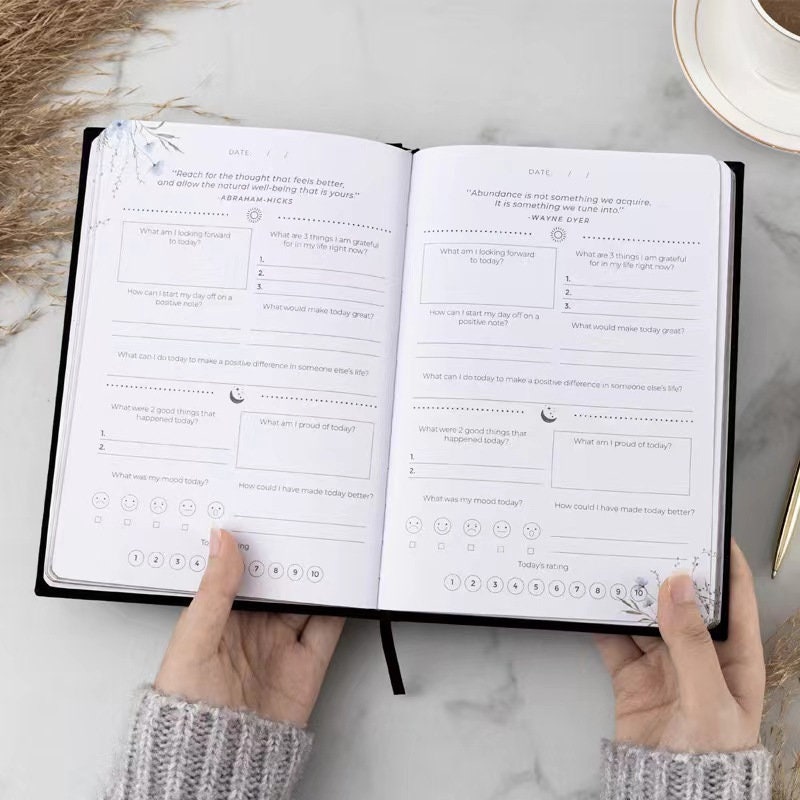 DATE: / /
"Reach for the thought that feels better,
and allow the natural well-being that is yours."
-ABRAHAM-HICKS
What am I looking forward
to today?
What are 3 things I am grateful
for in my life right now?
1.
2.
3.
How can I start my day off on a
positive note?
What would make today great?
What can I do today to make a positive difference in someone else's life?
What were 2 good things that
happened today?
1.
2.
What am I proud of today?
What was my mood today?
How could I have made today better?
rating
1 2 3 4 7 8 9 10
DATE: / /
"Abundance is not something we acquire.
It is something we tune into."
-WAYNE DYER
What am I looking forward
to today?
What are 3 things I am grateful
for in my life right now?
1.
2.
3.
How can I start my day off on a
positive note?
What would make today great?
What can I do today to make a positive difference in someone else's life?
What were 2 good things that
happened today?
1.
2.
What am I proud of today?
What was my mood today?
How could I have made today better?
Today's rating
1 2 3 4 5 6 7 8 9 10